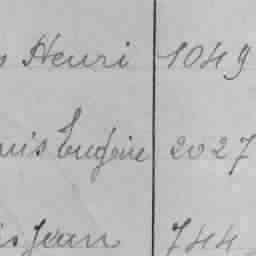 Henri 1049
uis Eugène 2027
is Jean 744